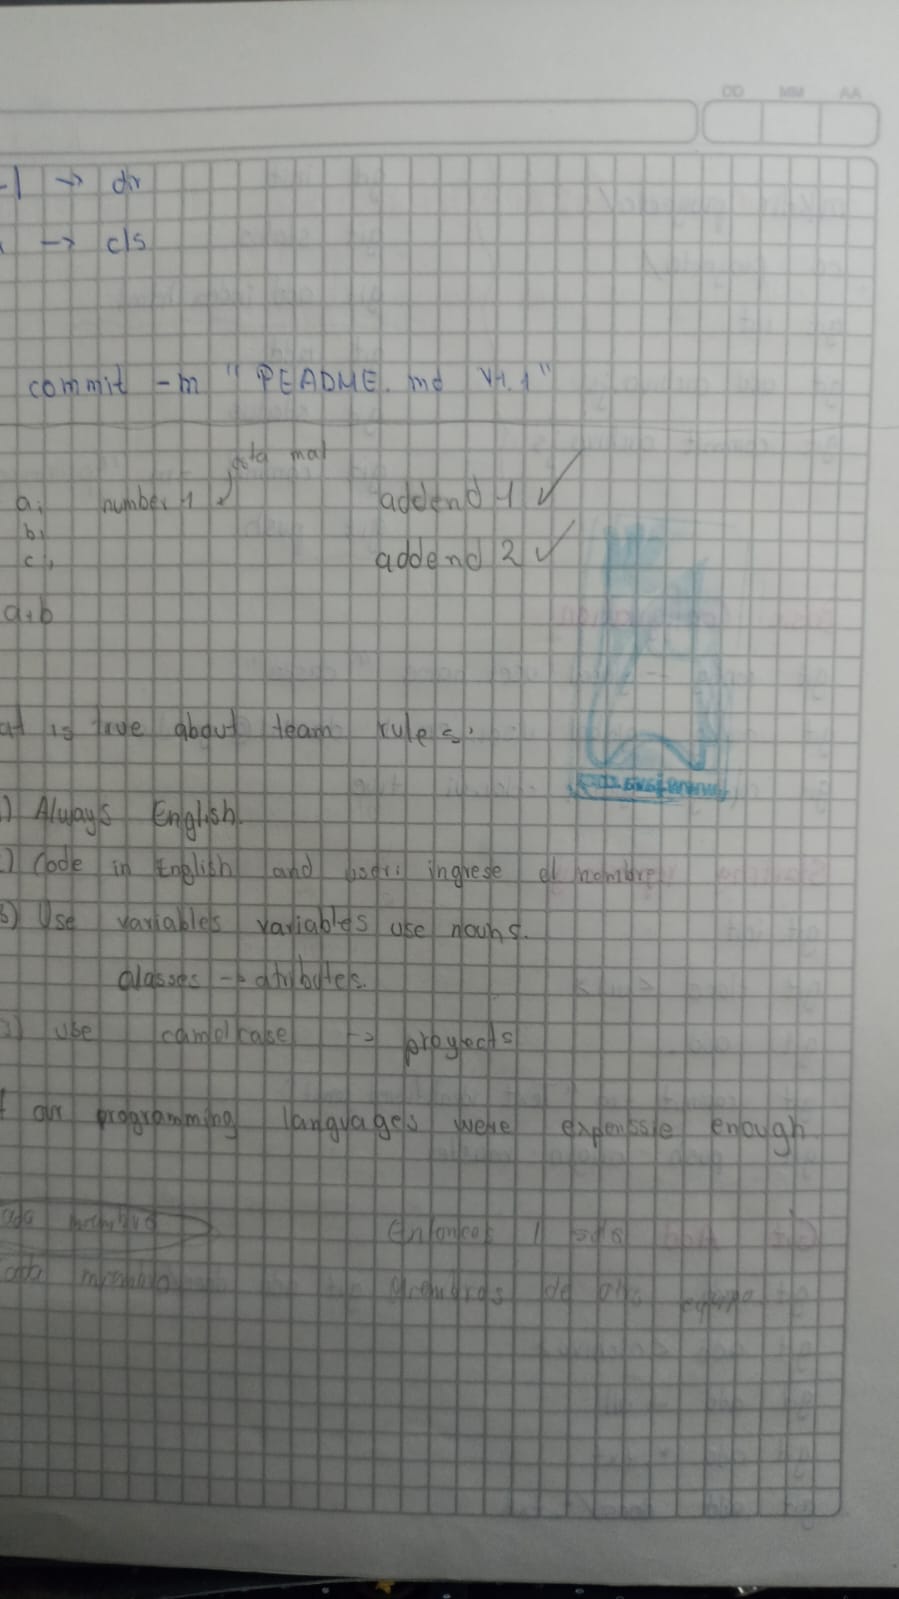 DD MM AA
-l → dir
→ cls
commit -m "README.md V1.1"
esta mal
a; number 1 addend 1 ✓
b;
c; addend 2 ✓
a+b
at is true about team rules:
1) Always English.
) Code in English and user: ingrese el nombre
3) Use variables variables use nouns.
Classes → atributes.
) use camelcase → proyects
f our programming languages were expenssie enough
ada miembro Entonces 11 sds
ada miembro miembros de otro equipo